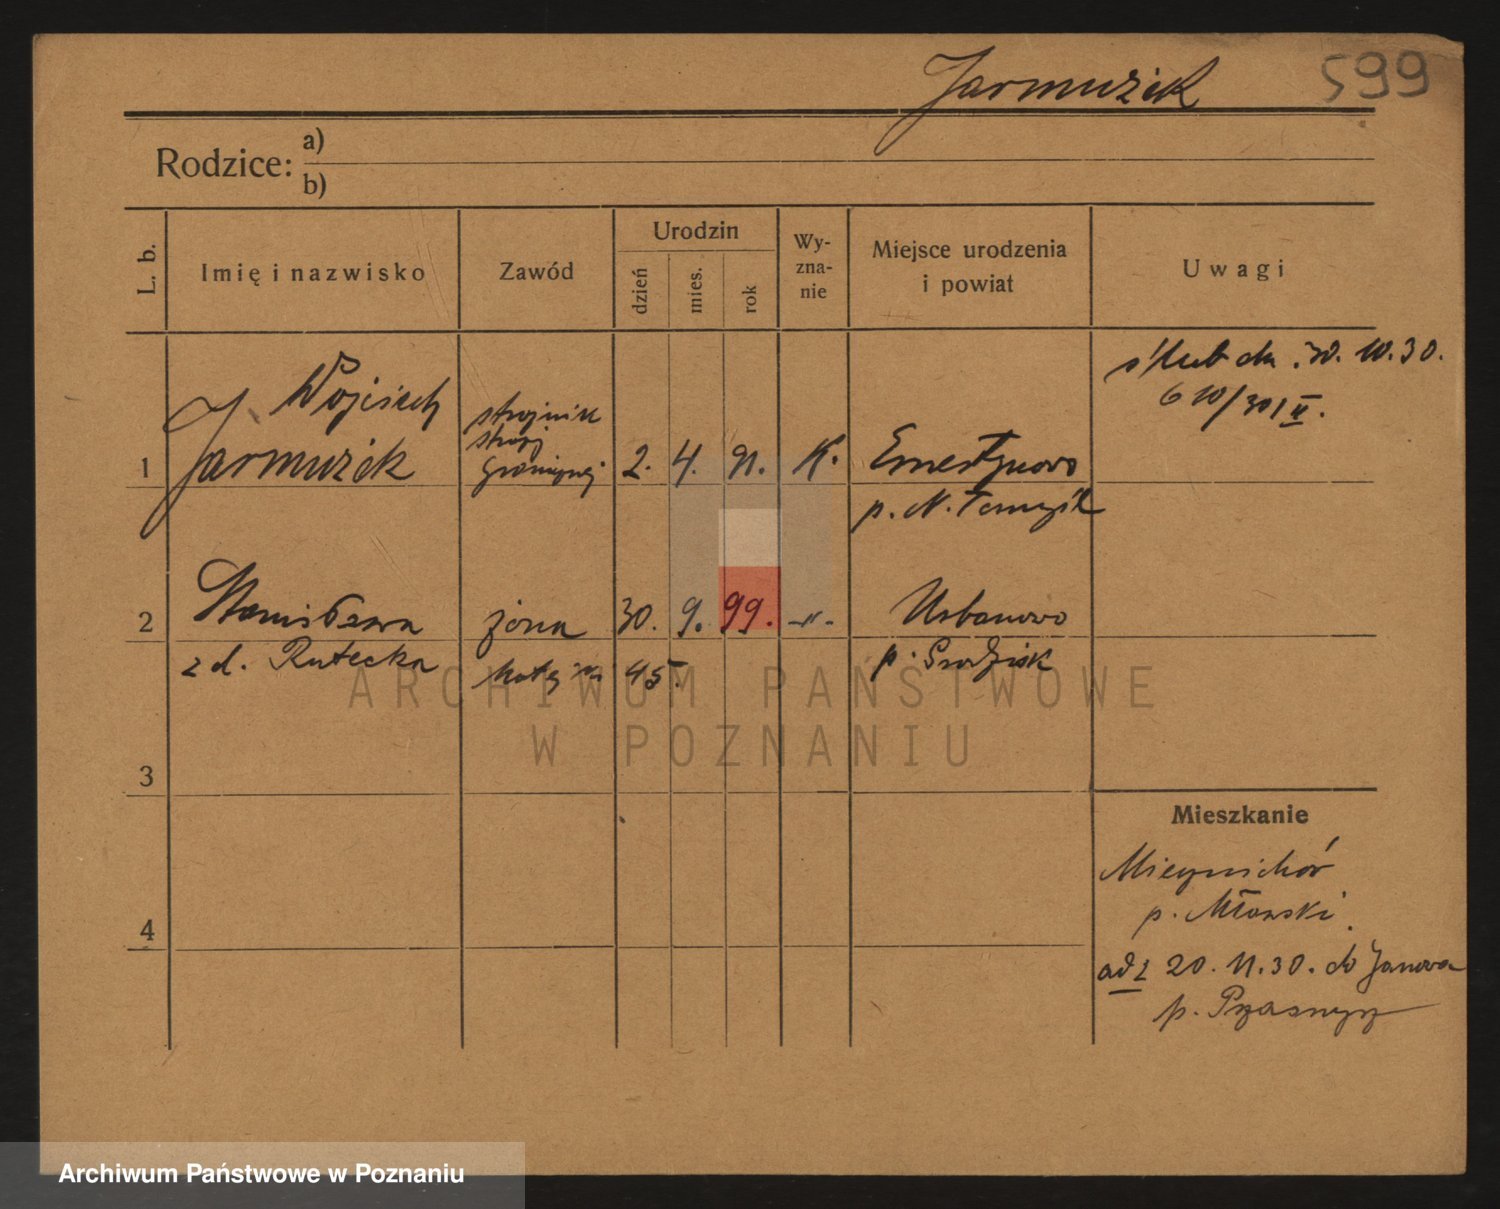 Jarmużek 599
Rodzice: a)
b)
L. b.
Imię i nazwisko
Zawód
Urodzin
dzień
mies.
rok
Wy-
zna-
nie
Miejsce urodzenia
i powiat
Uwagi
ślub dn. 30. 10. 30.
610/30/II.
1
Wojciech
Jarmużek
strażnik
straży
granicznej
2. 4. 91. K.
Ernestynowo
p. N. Tomyśl
2
Stanisława
z d. Rutecka
żona
30. 9. 99. -"-
45.
Urbanowo
p. Grodzisk
3
4
Mieszkanie
p. Mławski
od z 20. 11. 30. do Janowa
p. Przasnysz
ARCHIWUM PAŃSTWOWE
W POZNANIU
Archiwum Państwowe w Poznaniu